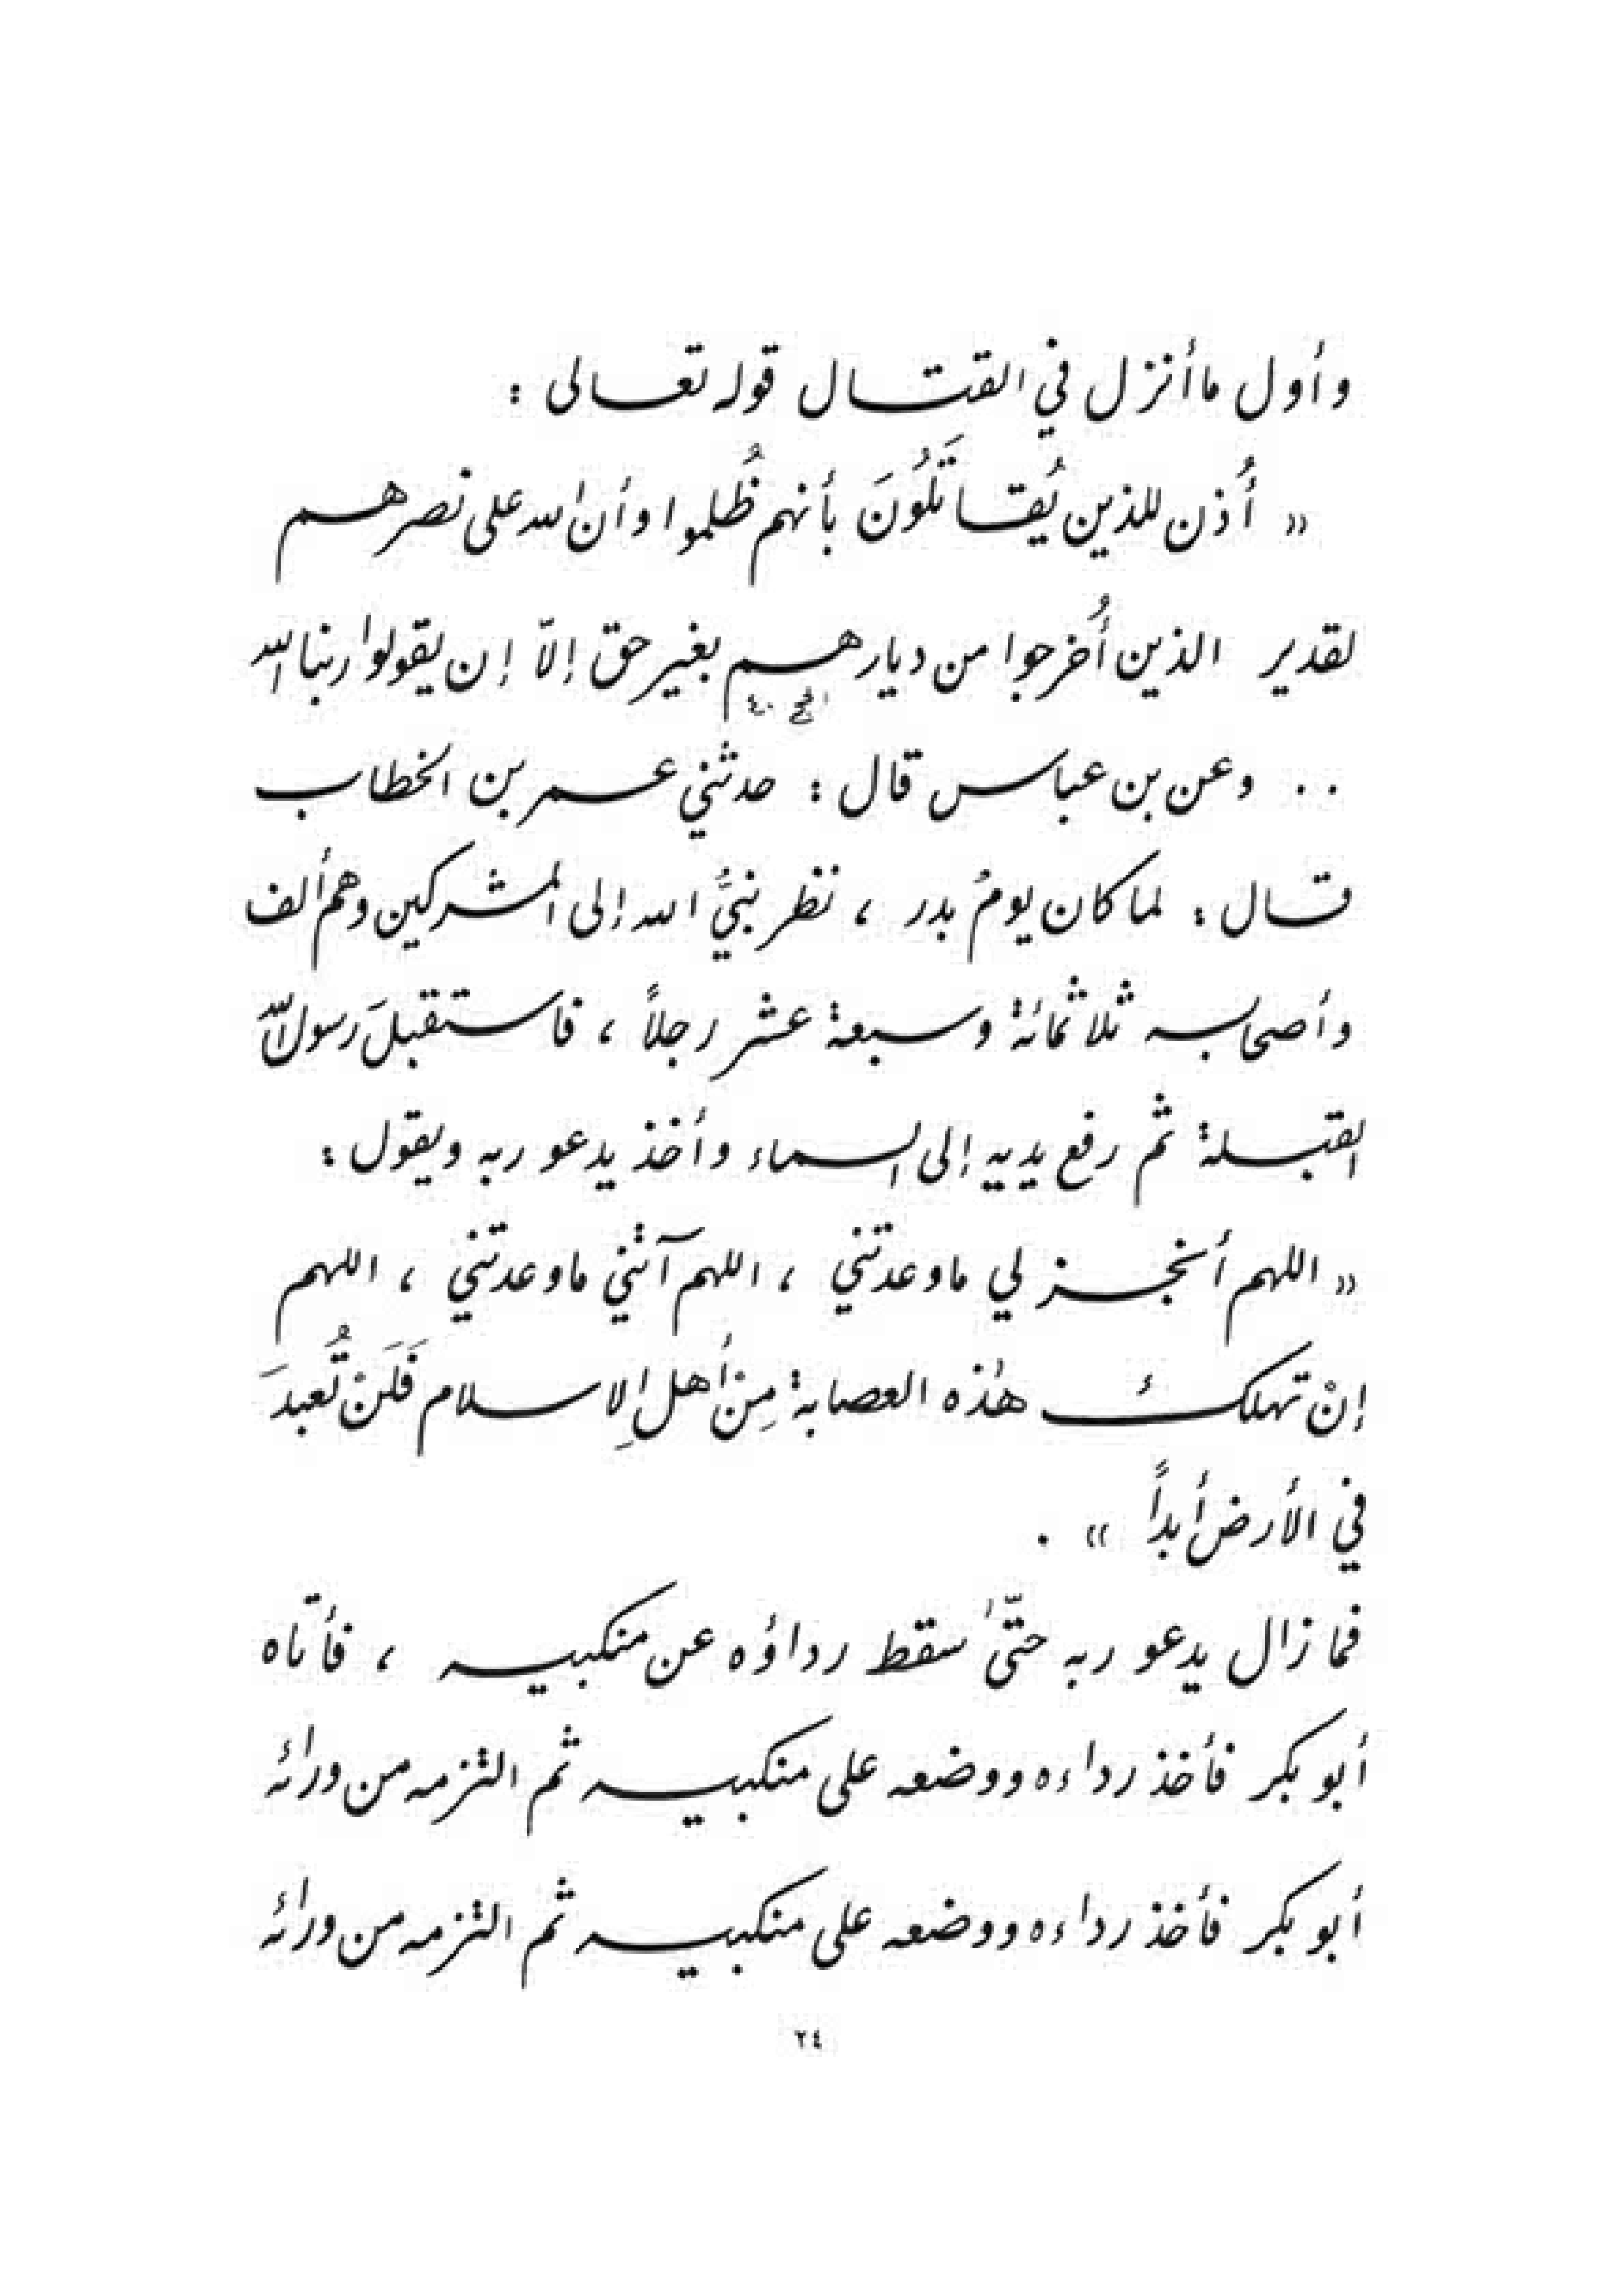 وأول ما أنزل في القتال قوله تعالى :
« أُذن للذين يُقاتَلُونَ بأنهم ظُلموا وأن الله على نصرهم
لقدير الذين أُخرجوا من ديارهم بغير حق إلاّ إن يقولوا ربنا الله
الحج ٤٠
.. وعن بن عباس قال : حدثني عمر بن الخطاب
قال : لما كان يومُ بدر ، نظر نبيُّ الله إلى المشركين وهم ألف
وأصحابه ثلاثمائة وسبعة عشر رجلاً ، فاستقبلَ رسول الله
القبلة ثم رفع يديه إلى السماء وأخذ يدعو ربه ويقول :
« اللهم أنجز لي ما وعدتني ، اللهم آتني ما وعدتني ، اللهم
إنْ تهلك هذه العصابة مِنْ أهل الإسلام فَلَنْ تُعبدَ
في الأرض أبداً » .
فما زال يدعو ربه حتّى سقط رداؤه عن منكبيه ، فأتاه
أبو بكر فأخذ رداءه ووضعه على منكبيه ثم التزمه من ورائه
أبو بكر فأخذ رداءه ووضعه على منكبيه ثم التزمه من ورائه
٢٤